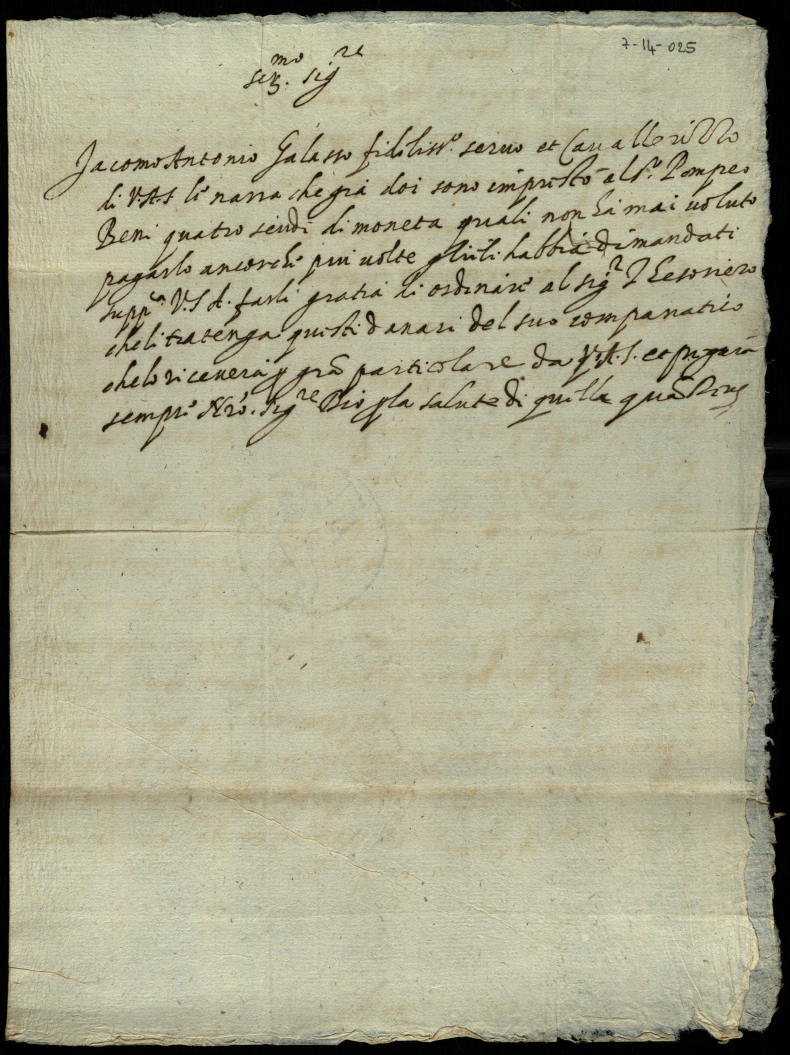 7-14-025
Ser.mo Sig.re
Jacomo Antonio Galasso fidiliss.o seruo et Cauallerizzo
di V.A.S li narra che già doi sono imprestò al S.r Pompeo
Beni quatro scudi di moneta quali non hà mai uoluto
pagarlo ancorche piu uolte gli li habbia dimandati
supp.ca V.S A. farli gratia di ordinare al sig.r Thesoriero
che li tratenga questi danari del suo companatico
che lo riceuerà p grã particolare da V.A.S. et pregarà
sempre Nrõ. Sig.re Dio p la salute di quella quã Deus